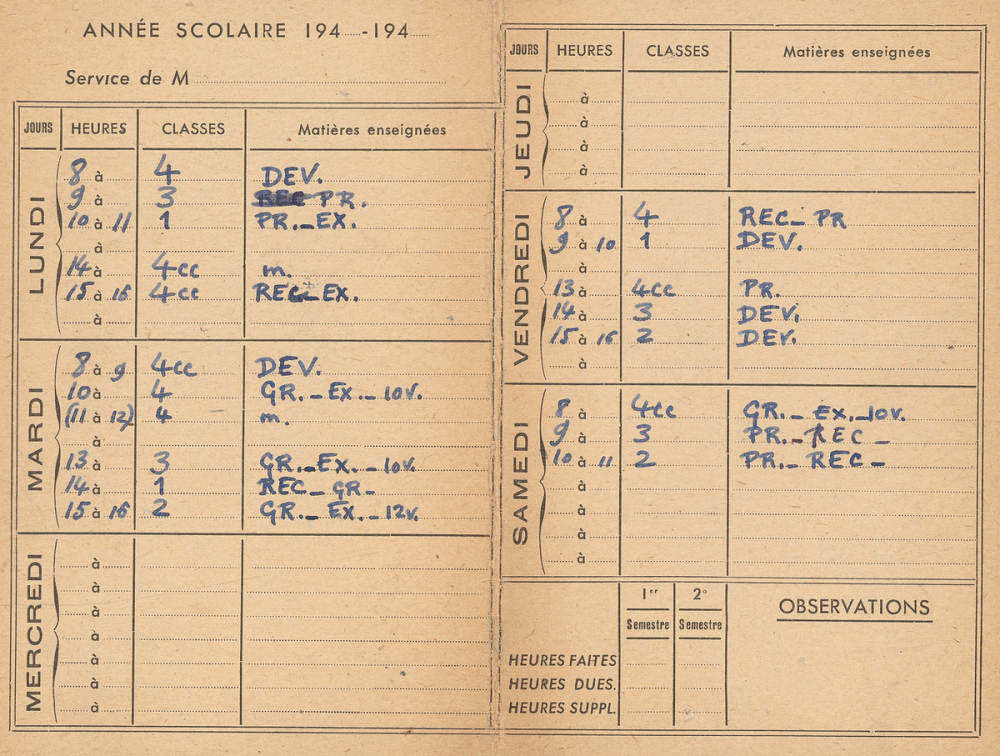 ANNÉE SCOLAIRE 194.....-194.....
Service de M
JOURS HEURES CLASSES Matières enseignées
LUNDI
8 à 4 DEV.
9 à 3 REC PR.
10 à 11 1 PR._EX.
à
14 à 4cc m.
15 à 16 4cc REC_EX.
à
MARDI
8 à 9 4cc DEV.
10 à 4 GR._EX._10V.
(11 à 12) 4 m.
à
13 à 3 GR._EX._10V.
14 à 1 REC_GR_
15 à 16 2 GR._EX._12V.
MERCREDI
à
à
à
à
à
à
à
JOURS HEURES CLASSES Matières enseignées
JEUDI
à
à
à
à
VENDREDI
8 à 4 REC_PR
9 à 10 1 DEV.
à
13 à 4cc PR.
14 à 3 DEV.
15 à 16 2 DEV.
à
SAMEDI
8 à 4cc GR._EX._10V.
9 à 3 PR._REC_
10 à 11 2 PR._REC_
à
à
à
à
1er Semestre 2e Semestre
OBSERVATIONS
HEURES FAITES
HEURES DUES.
HEURES SUPPL.